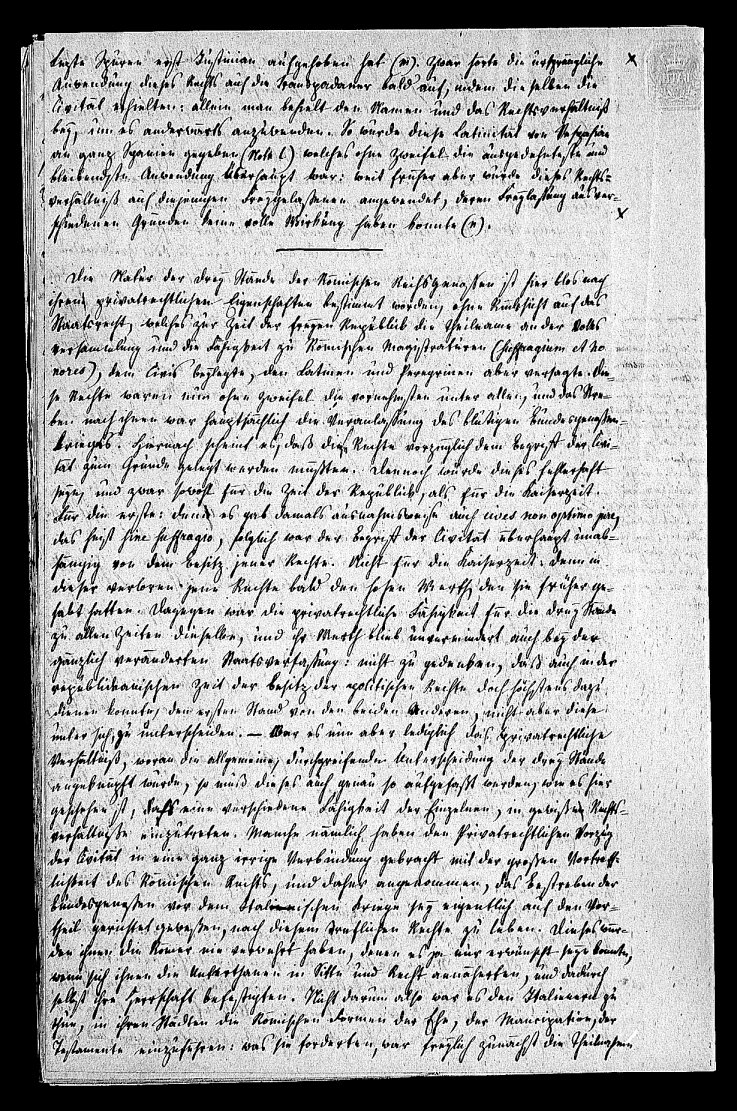 letzte Spuren erst Justinian aufgehoben hat (m). Zwar hörte die ursprüngliche
Anwendung dieses Rechts auf die Transpadaner bald auf, indem dieselben die
Civität erhielten: allein man behielt den Namen und das Rechtsverhältniß
bey, um es anderwärts anzuwenden. So wurde diese Latinität von Vespasian
an ganz Spanien gegeben (Note l.) welches ohne Zweifel die ausgedehnteste und
bleibendste Anwendung überhaupt war: weit früher aber wurde dieses Rechts-
verhältniß auf diejenigen Freygelassenen angewendet, deren Freylassung aus ver-
schiedenen Gründen keine volle Wirkung haben konnte (n).
Die Natur der drey Stände der Römischen Reichsgenossen ist hier blos nach
ihren privatrechtlichen Eigenschaften bestimmt worden, ohne Rücksicht auf das
Staatsrecht, welches zur Zeit der freyen Republik die Theilname an der Volks
versammlung und die Fähigkeit zu Römischen Magistraturen (suffragium et ho-
nores), dem Civis beylegte, den Latinen und Peregrinen aber versagte. Die-
se Rechte waren nun ohne Zweifel die vornehmsten unter allen, und das Stre-
ben nach ihnen war hauptsächlich die Veranlassung des blutigen Bundesgenossen-
krieges. Hiernach scheint es, daß diese Rechte vorzüglich dem Begriff der Civi-
tät zum Grunde gelegt werden müßten. Dennoch würde dieses fehlerhaft
seyn, und zwar sowohl für die Zeit der Republik, als für die Kaiserzeit.
Für die erste: denn es gab damals ausnahmsweise auch cives non optimo jure,
das heißt sine suffragio, folglich war der Begriff der Civität überhaupt unab-
hängig von dem Besitz jener Rechte. Nicht für die Kaiserzeit: denn in
dieser verloren jene Rechte bald den hohen Werth, den sie früher ge-
habt hatten. Dagegen war die privatrechtliche Fähigkeit für die drey Stände
zu allen Zeiten dieselbe, und ihr Werth blieb unvermindert auch bey der
gänzlich veränderten Staatsverfassung: nicht zu gedenken, daß auch in der
republikanischen Zeit der Besitz der politischen Rechte doch höchstens dazu
dienen konnte, den ersten Stand von den beiden Anderen, nicht aber diese
unter sich, zu unterscheiden. — War es nun aber lediglich das privatrechtliche
Verhältniß, woran die allgemeine, durchgreifende Unterscheidung der drey Stände
angeknüpft wurde, so muß dieses auch genau so aufgefaßt werden, wie es hier
geschehen ist, als eine verschiedene Fähigkeit der Einzelnen, in gewisse Rechts-
verhältnisse einzutreten. Manche nämlich haben den privatrechtlichen Vorzug
der Civität in eine ganz irrige Verbindung gebracht mit der großen Vortreff-
lichkeit des Römischen Rechts, und daher angenommen, das Bestreben der
Bundesgenossen vor dem Italischen Kriege sey eigentlich auf den Vor-
theil gerichtet gewesen, nach diesem trefflichen Rechte zu leben. Dieses wür-
den ihnen die Römer nie verwehrt haben, denen es ja nur erwünscht seyn konnte,
wenn sich ihnen die Unterthanen in Sitte und Recht annäherten, und dadurch
selbst ihre Herrschaft befestigten. Nicht darum also war es den Italienern zu
thun, in ihren Städten die Römischen Formen der Ehe, der Mancipation, der
Testamente einzuführen: was sie forderten, war freylich zunächst die Theilnahme